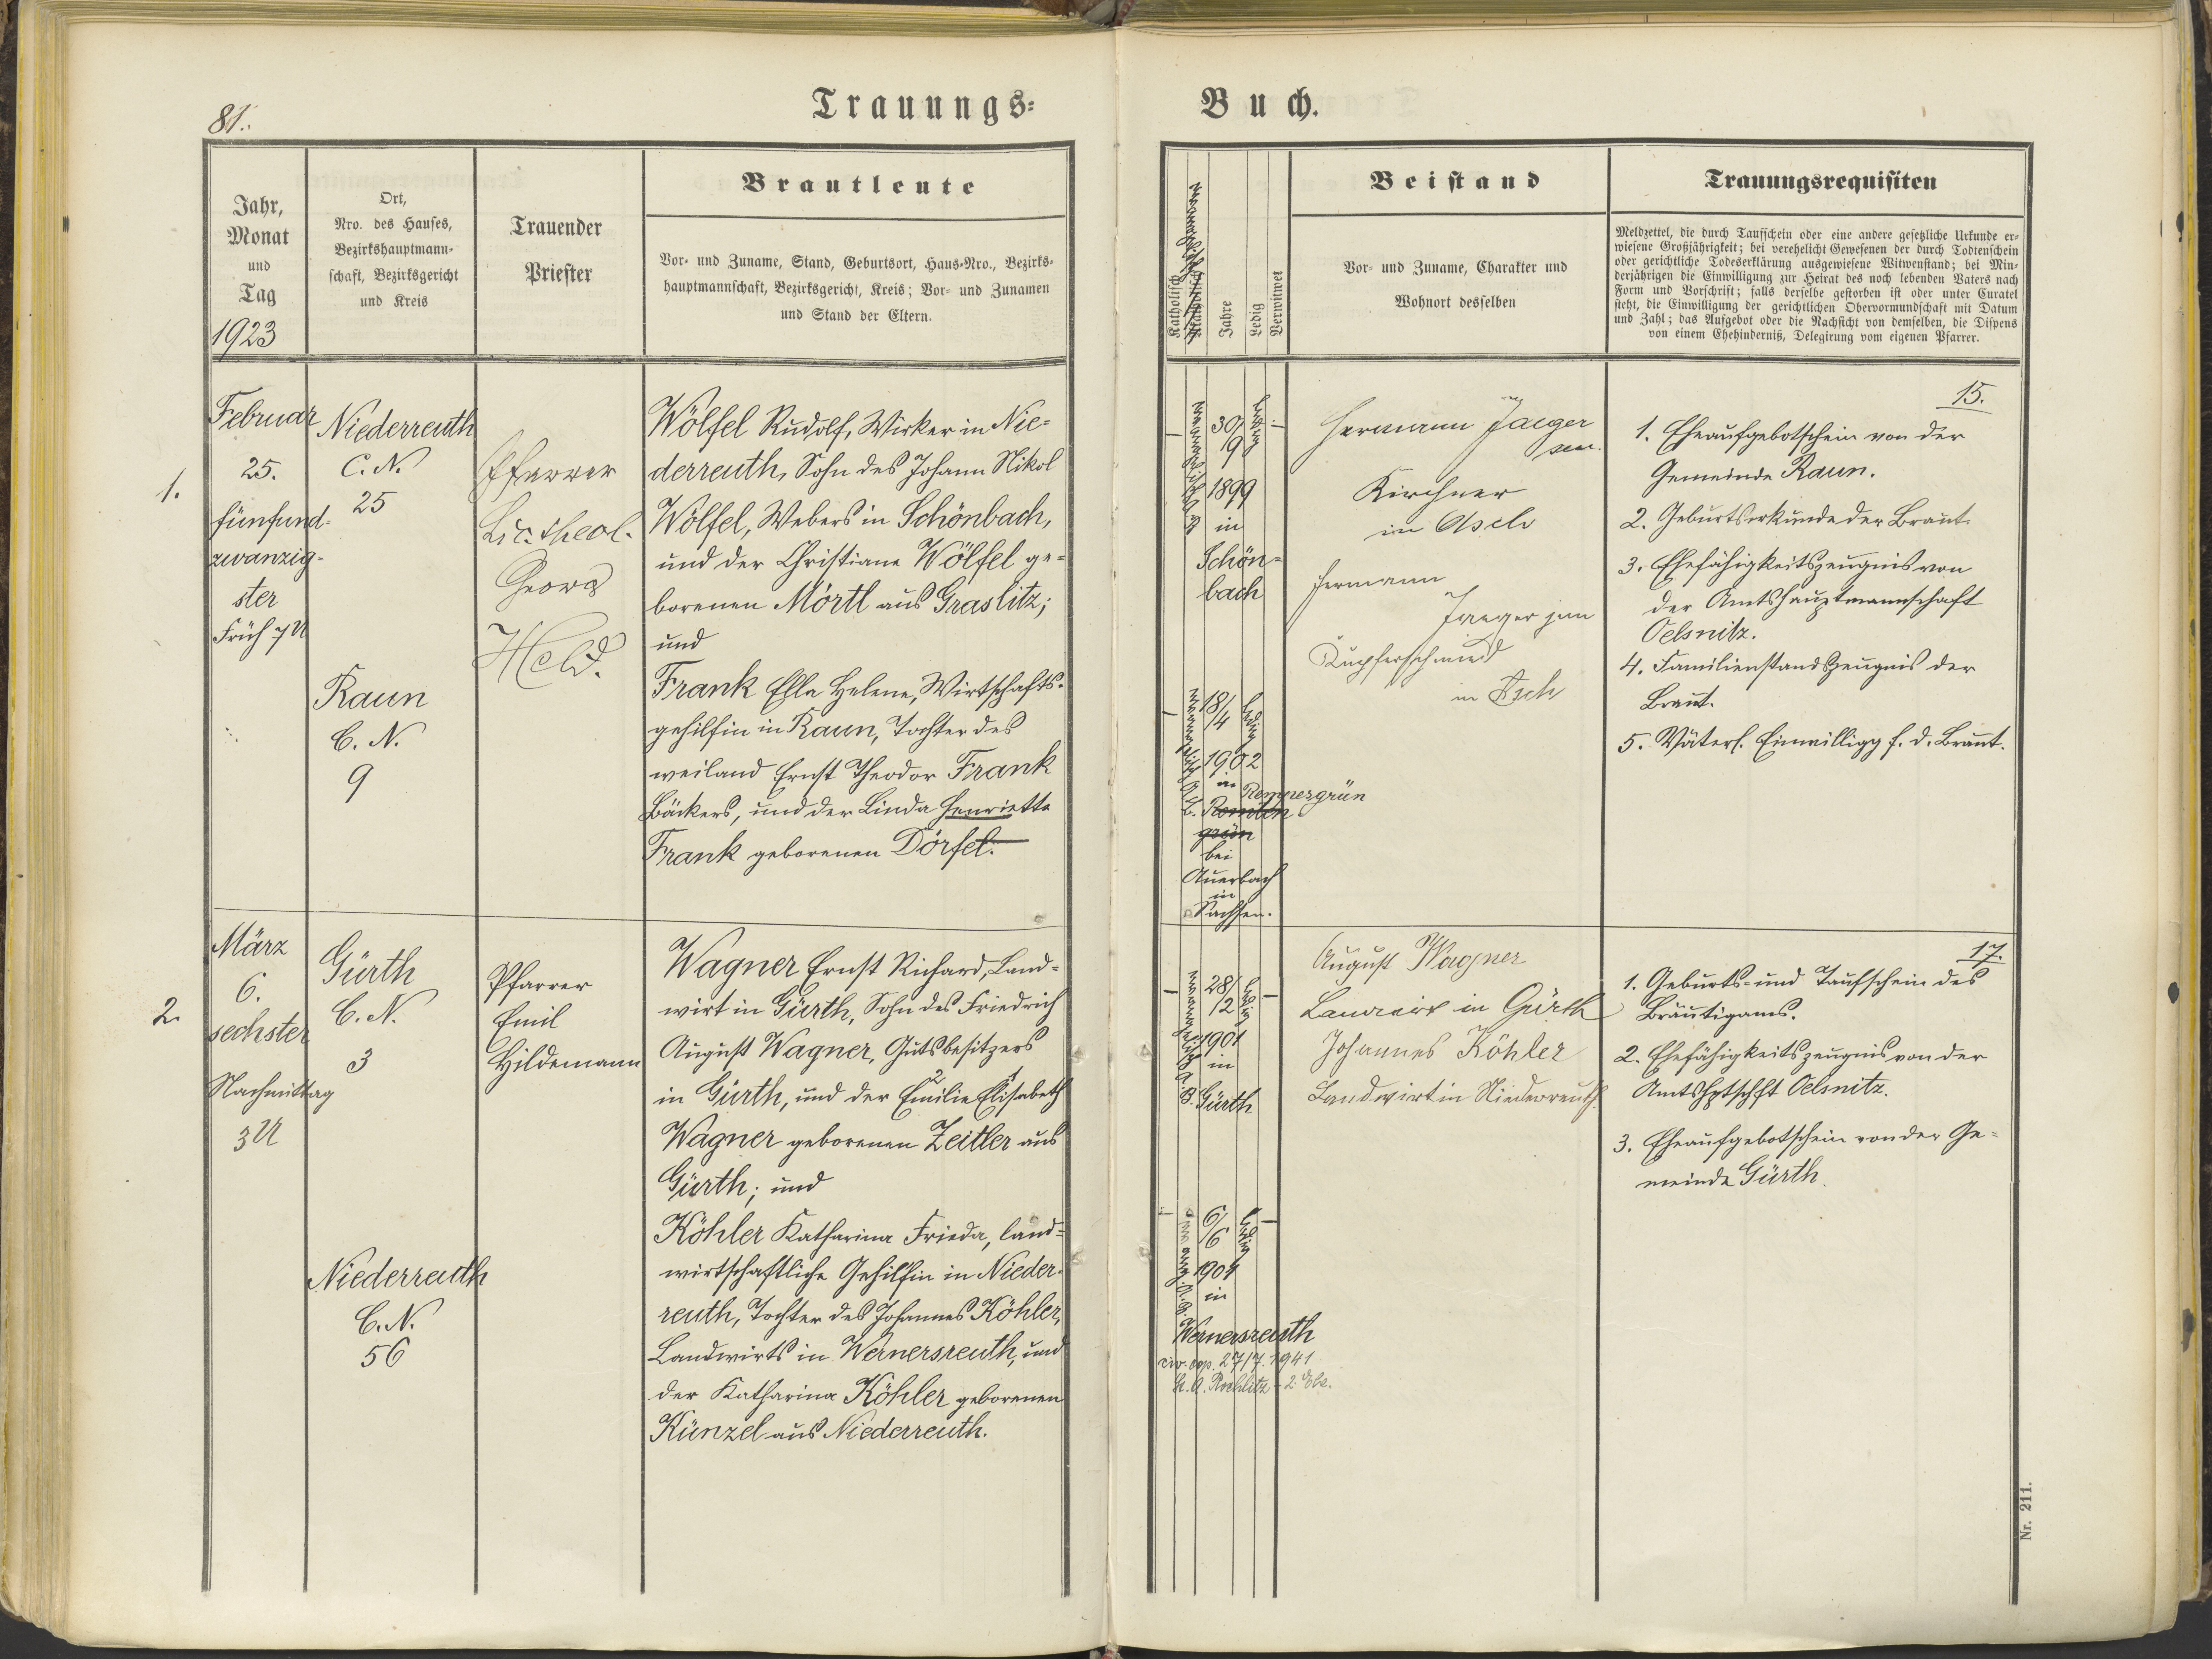 81.
Trauungs-
Jahr,
Monat
und
Tag
1923
Ort,
Nro. des Hauses,
Bezirkshauptmann-
schaft, Bezirksgericht
und Kreis
Trauender
Priester
Brautleute
Vor- und Zuname, Stand, Geburtsort, Haus-Nro., Bezirks-
hauptmannschaft, Bezirksgericht, Kreis; Vor- und Zunamen
und Stand der Eltern.
1.
Februar
25.
fünfund-
zwanzig-
ster
Früh 7 U
Niederreuth
C. N.
25
Raun
C. N.
9
Pfarrer
Lic. theol.
Georg
Held.
Wölfel Rudolf, Wirker in Nie-
derreuth, Sohn des Johann Nikol
Wölfel, Webers in Schönbach,
und der Christiane Wölfel ge-
borenen Mörtl aus Graslitz;
und
Frank Ella Helene, Wirtschafts-
gehilfin in Raun, Tochter des
weiland Ernst Theodor Frank
Bäckers, und der Linda Henriette
Frank geborenen Dörfel.
2.
März
6.
sechster
Nachmittag
3 U
Gürth
C. N.
3
Niederreuth
C. N.
56
Pfarrer
Emil
Hildemann
Wagner Ernst Richard, Land-
wirt in Gürth, Sohn des Friedrich
August Wagner, Gutsbesitzers
in Gürth, und der Emilie Elisabeth
Wagner geborenen Zeitler aus
Gürth; und
Köhler Katharina Frieda, land-
wirtschaftliche Gehilfin in Nieder-
reuth, Tochter des Johannes Köhler,
Landwirts in Wernersreuth, und
der Katharina Köhler geborenen
Künzel aus Niederreuth.
Buch.
Katholisch
Jahre
Ledig
Verwitwet
Beistand
Vor- und Zuname, Charakter und
Wohnort desselben
Trauungsrequisiten
Meldzettel, die durch Taufschein oder eine andere gesetzliche Urkunde er-
wiesene Großjährigkeit; bei verehelicht Gewesenen der durch Todtenschein
oder gerichtliche Todeserklärung ausgewiesene Witwenstand; bei Min-
derjährigen die Einwilligung zur Heirat des noch lebenden Vaters nach
Form und Vorschrift; falls derselbe gestorben ist oder unter Curatel
steht, die Einwilligung der gerichtlichen Obervormundschaft mit Datum
und Zahl; das Aufgebot oder die Nachsicht von demselben, die Dispens
von einem Ehehinderniß, Delegirung vom eigenen Pfarrer.
evangelisch A. B.
30/
9
1899
in
Schön-
bach
ledig
evangelisch A. B.
18/
4
1902
in Rempesgrün
bei
Auerbach
in
Sachsen.
ledig
Hermann Jaeger
sen.
Kirchner
in Asch
Hermann
Jaeger jun
Kupferschmied
in Asch
15.
1. Eheaufgebotschein von der
Gemeinde Raun.
2. Geburtsurkunde der Braut.
3. Ehefähigkeitszeugnis von
der Amtshauptmannschaft
Oelsnitz.
4. Familienstandszeugnis der
Braut.
5. Väterl. Einwilligg f. d. Braut.
evangelisch A. B.
28/
12
1901
in
Gürth
ledig
6/
6
1904
in
Wernersreuth
civ. cop. 27/7. 1941
St. A. Rochlitz - 2. Ehe.
ledig
August Wagner
Landwirt in Gürth
Johannes Köhler
Landwirt in Niederreuth.
17.
1. Geburts- und Taufschein des
Bräutigams.
2. Ehefähigkeitszeugnis von der
Amtshptschft Oelsnitz.
3. Eheaufgebotschein von der Ge-
meinde Gürth.
Nr. 211.